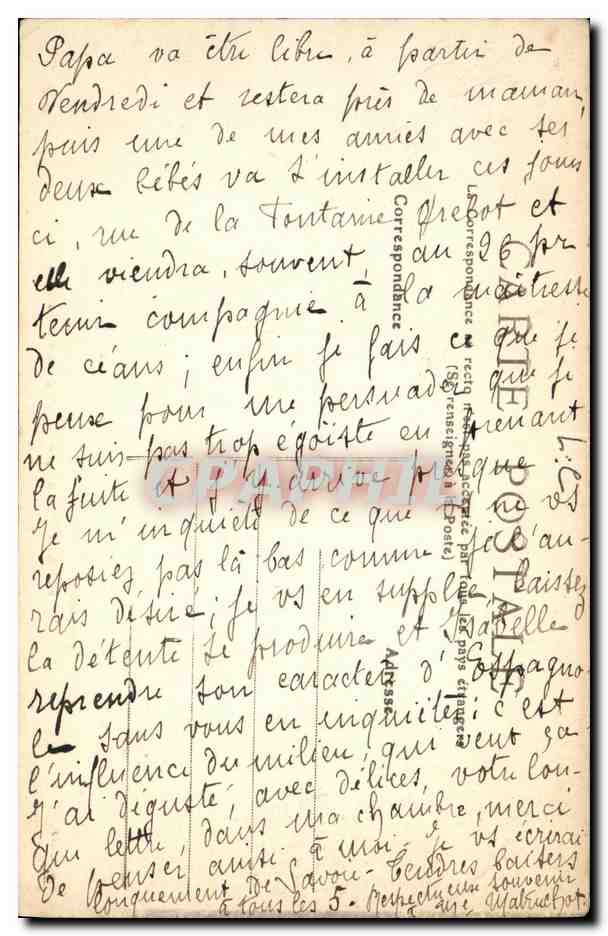 Papa va être libre, à partir de
Vendredi et restera près de maman,
puis une de mes amies avec ses
deux bébés va s'installer ces jours
ci, rue de la Fontaine et
elle viendra, souvent, au 26 pr
tenir compagnie à la maîtresse
de céans ; enfin je fais ce que je
peux pour me persuader que je
ne suis pas trop égoïste en prenant
la fuite et j'y arrive presque
Je m'inquiète de ce que ne vs
reposiez pas là bas comme je l'au-
rais désiré ; je vs en supplie, laissez
la détente se produire et
reprendre son caractère
sans vous en inquiéter ; c'est
l'influence du milieu, qui veut ça
J'ai dégusté, avec délices, votre lon-
gue lettre, dans ma chambre, merci
de penser ainsi à moi. Je vs écrirai
longuement de Savoie. Tendres baisers
à tous les 5. Respectueux souvenir
à
CARTE POSTALE
La Correspondance au recto n'est pas acceptée par tous les pays étrangers
(Se renseigner à la Poste)
Correspondance
Adresse
CPARAMA